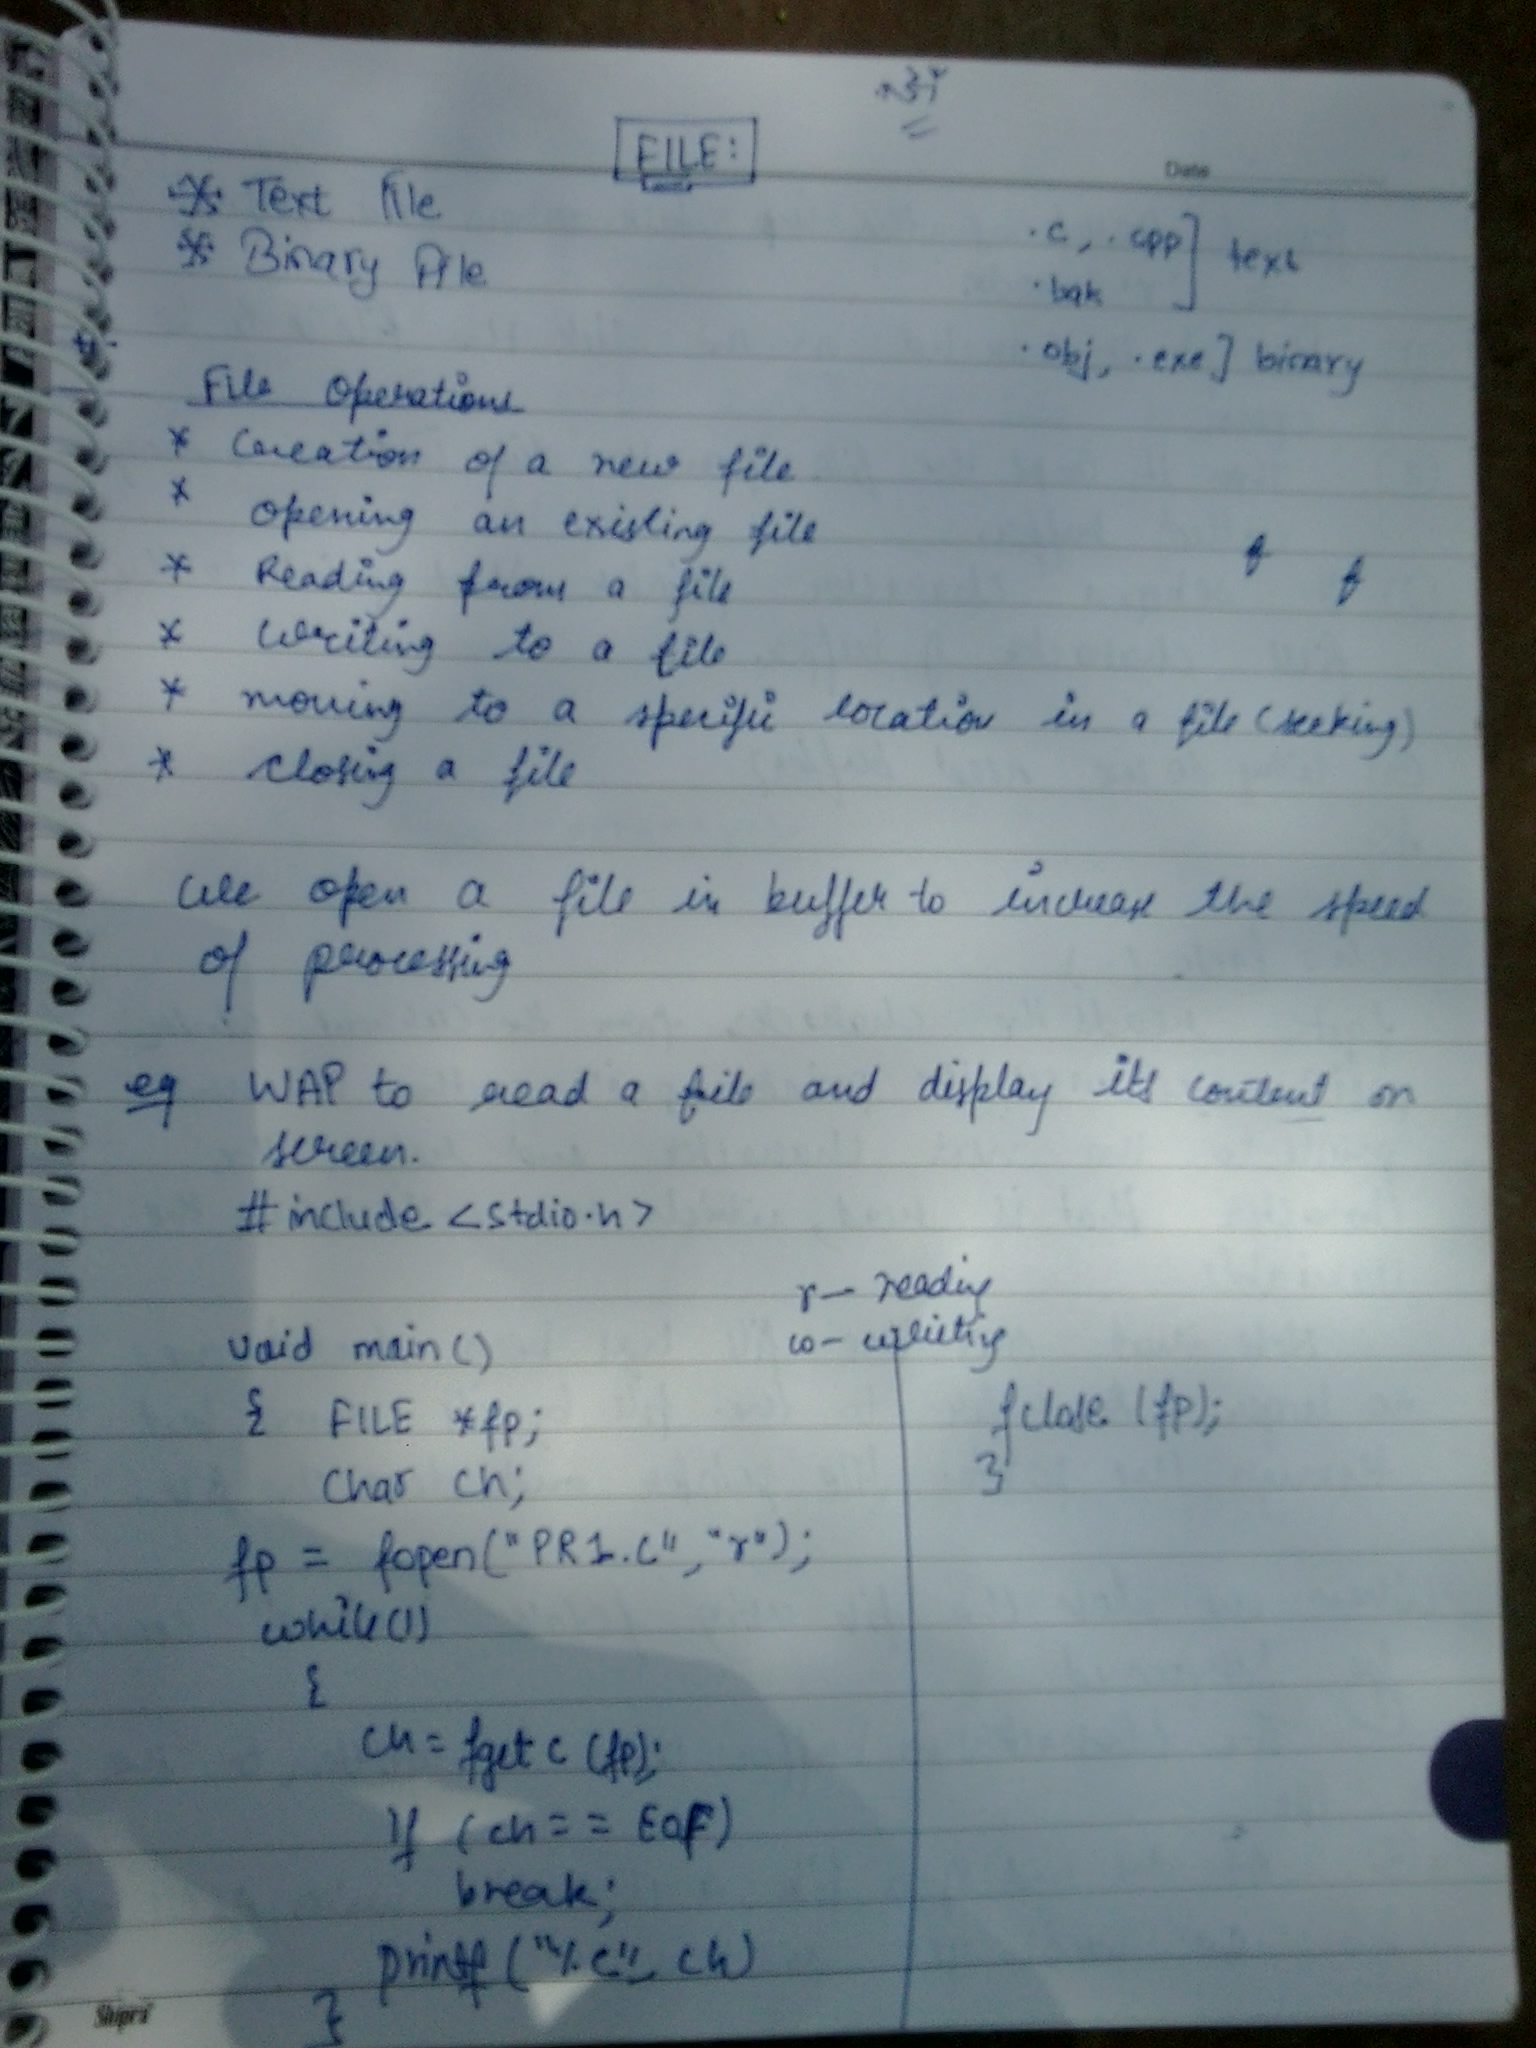 FILE:
Date
Text File
Binary File
.c, .cpp ] text
.bak
.obj, .exe ] binary
File Operations
* Creation of a new file
* opening an existing file
* Reading from a file
* writing to a file
* moving to a specific location in a file (seeking)
* closing a file
We open a file in buffer to increase the speed
of processing
eg WAP to read a file and display its content on
screen.
#include <stdio.h>
r - reading
w - writing
void main()
{ FILE *fp;
char ch;
fp = fopen("PR1.C","r");
while(1)
{
ch = fgetc (fp);
If (ch == EOF)
break;
printf ("%c", ch)
}
fclose (fp);
}
Shipra